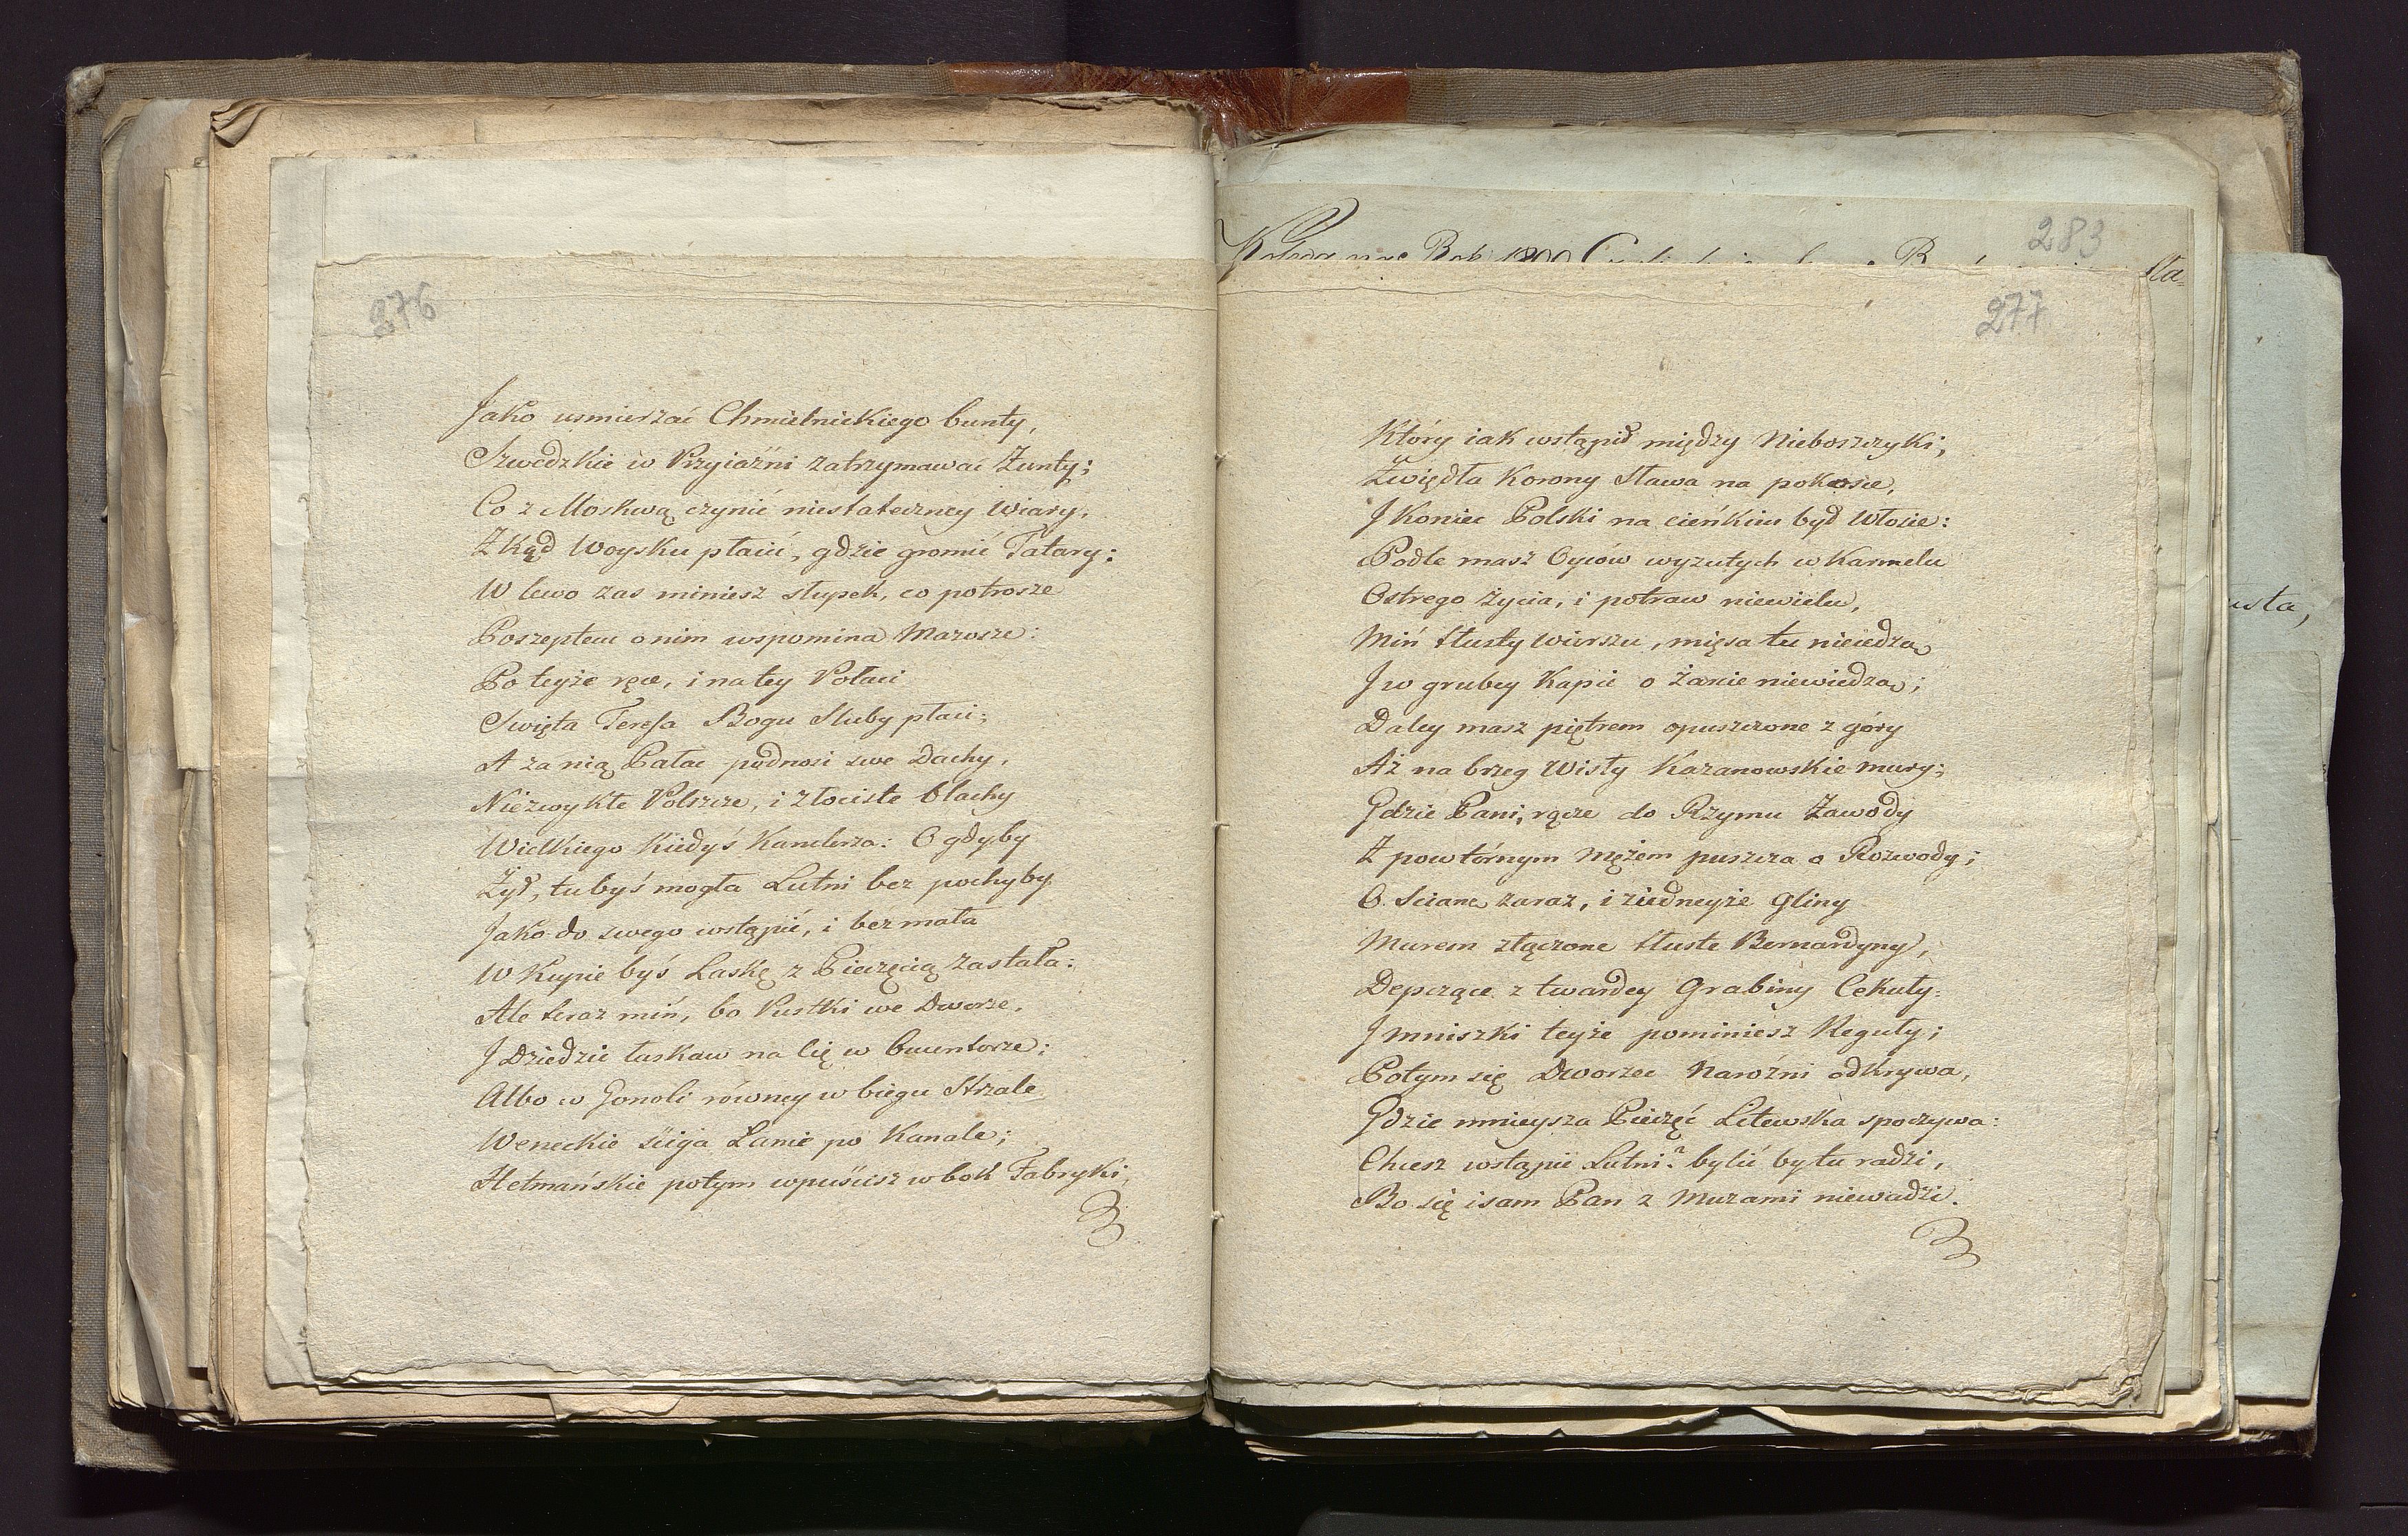 276
Jako usmierzać Chmielnickiego bunty,
Szwedzkie w Przyiaźni zatrzymawać Żunty;
Co z Moskwą czynić niestateczney Wiary,
Zkąd Woysku płacić, gdzie gromić Tatary:
W lewo zas miniesz słupek, co potrosze
Poszeptem o nim wspomina Mazosze:
Po teyże ręce, i na tey Połaci
Swięta Teressa Bogu Sluby płaci;
A za nią Pałac podnosi swe Dachy,
Niezwykłe Polszcze, i złociste blachy
Wielkiego kiedyś Kanclerza: O gdyby
Żył, tubyś mogła Lutni bez pochyby
Jako do swego wstąpić, i bez mała
W Kupie byś Laskę z Pieczęcią zastała:
Ale teraz miń, bo Pustki we Dworze,
J Dziedzic łaskaw na Cię w Cmentorze;
Albo w Gonoli równey w biegu Strzale
Weneckie sciga Lanie po Kanale;
Hetmańskie potym wpuścisz w bok Fabryki,
283
277
Który iak wstąpił między Nieboszczyki;
Zwiędła Korony Sława na pokosie,
J Koniec Polski na cieńkim był Włosie:
Podle masz Oyców wyzutych w Karmelu
Ostrego życia, i potraw niewielu,
Miń tłusty Wierszu, mięsa tu nieiedzą
J w grubey Kapie o Żarcie niewiedzą;
Daley masz piętrem opuszczone z góry
Aż na brzeg Wisły Kazanowskie mury;
Gdzie Pani, rącze do Rzymu Zawody
Z powtórnym Mężem puszcza o Rozwody;
O Scianę zaraz, i ziedneyże Gliny
Murem złączone tłuste Bernardyny,
Depczące z twardey Grabiny Cekuły:
J mniszki teyże pominiesz Reguły;
Potym się Dworzec Naroźni odkrywa,
Gdzie mnieysza Pieczęć Litewska spoczywa:
Chcesz wstąpić Lutni? byłić by tu radzi,
Bo się i sam Pan z Muzami niewadzi.